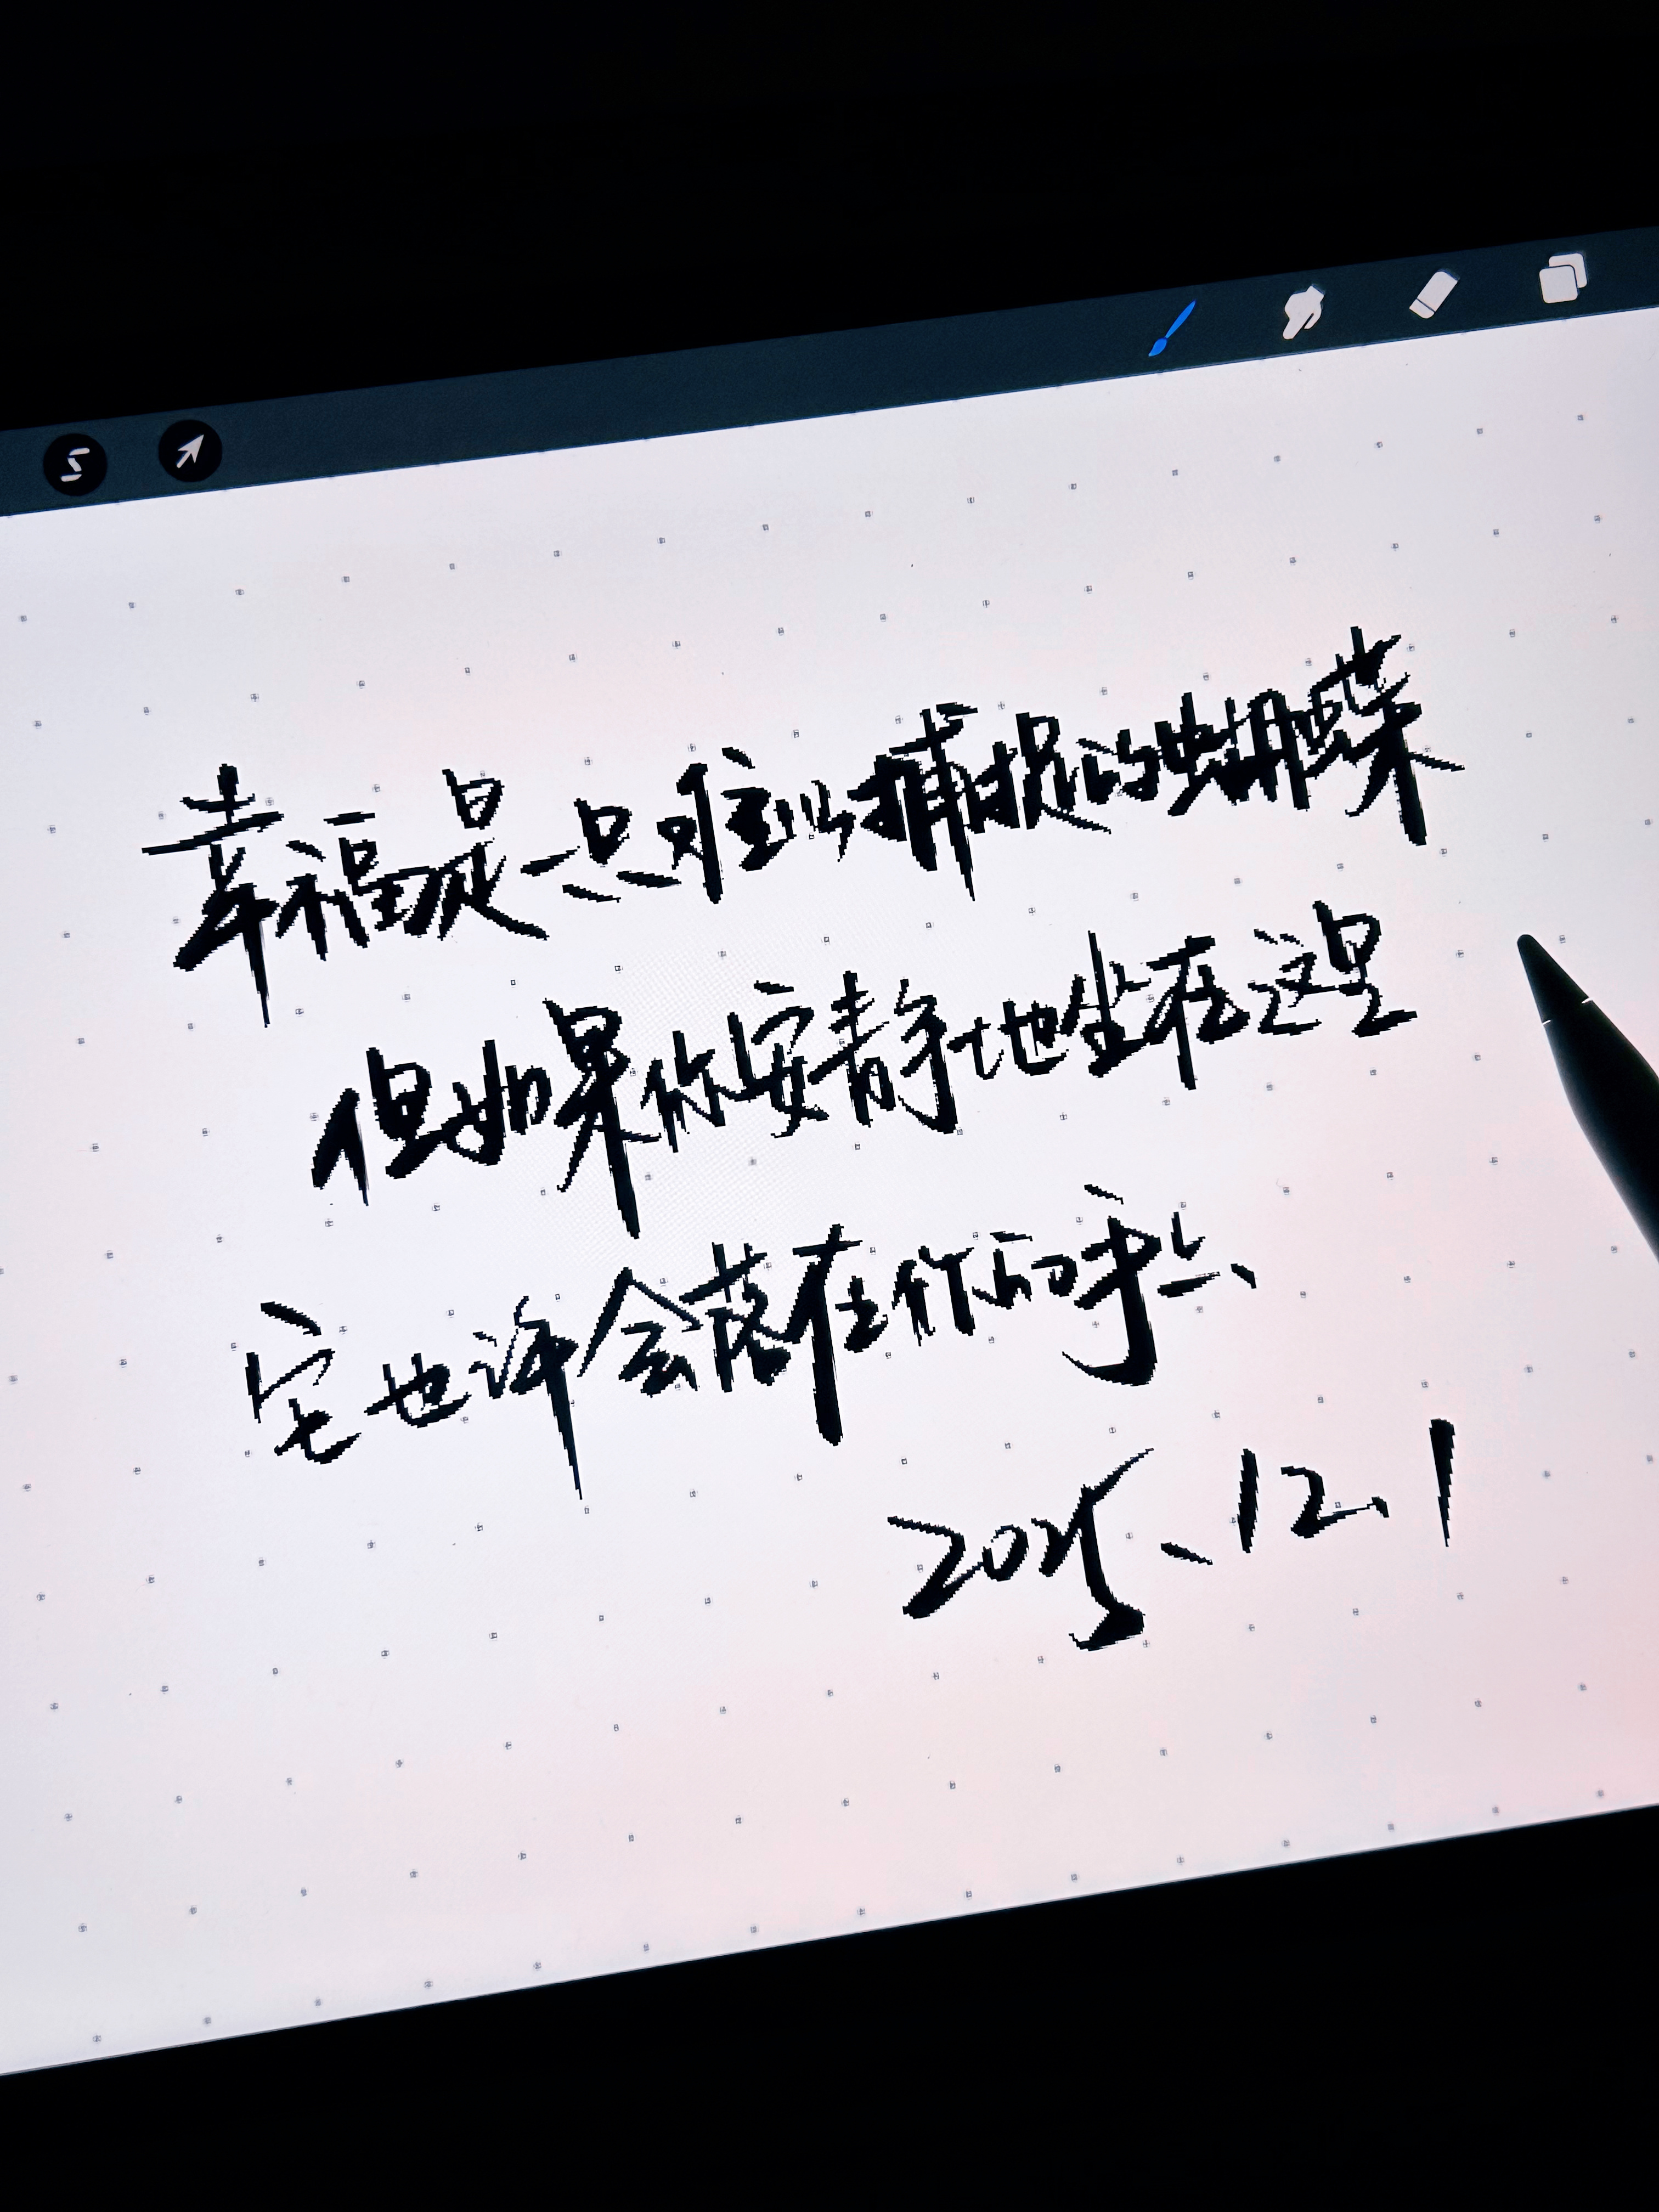 幸福是一只难以捕捉的蝴蝶
但如果你安静地坐在这里
它也许会落在你的身上
2025、12、1